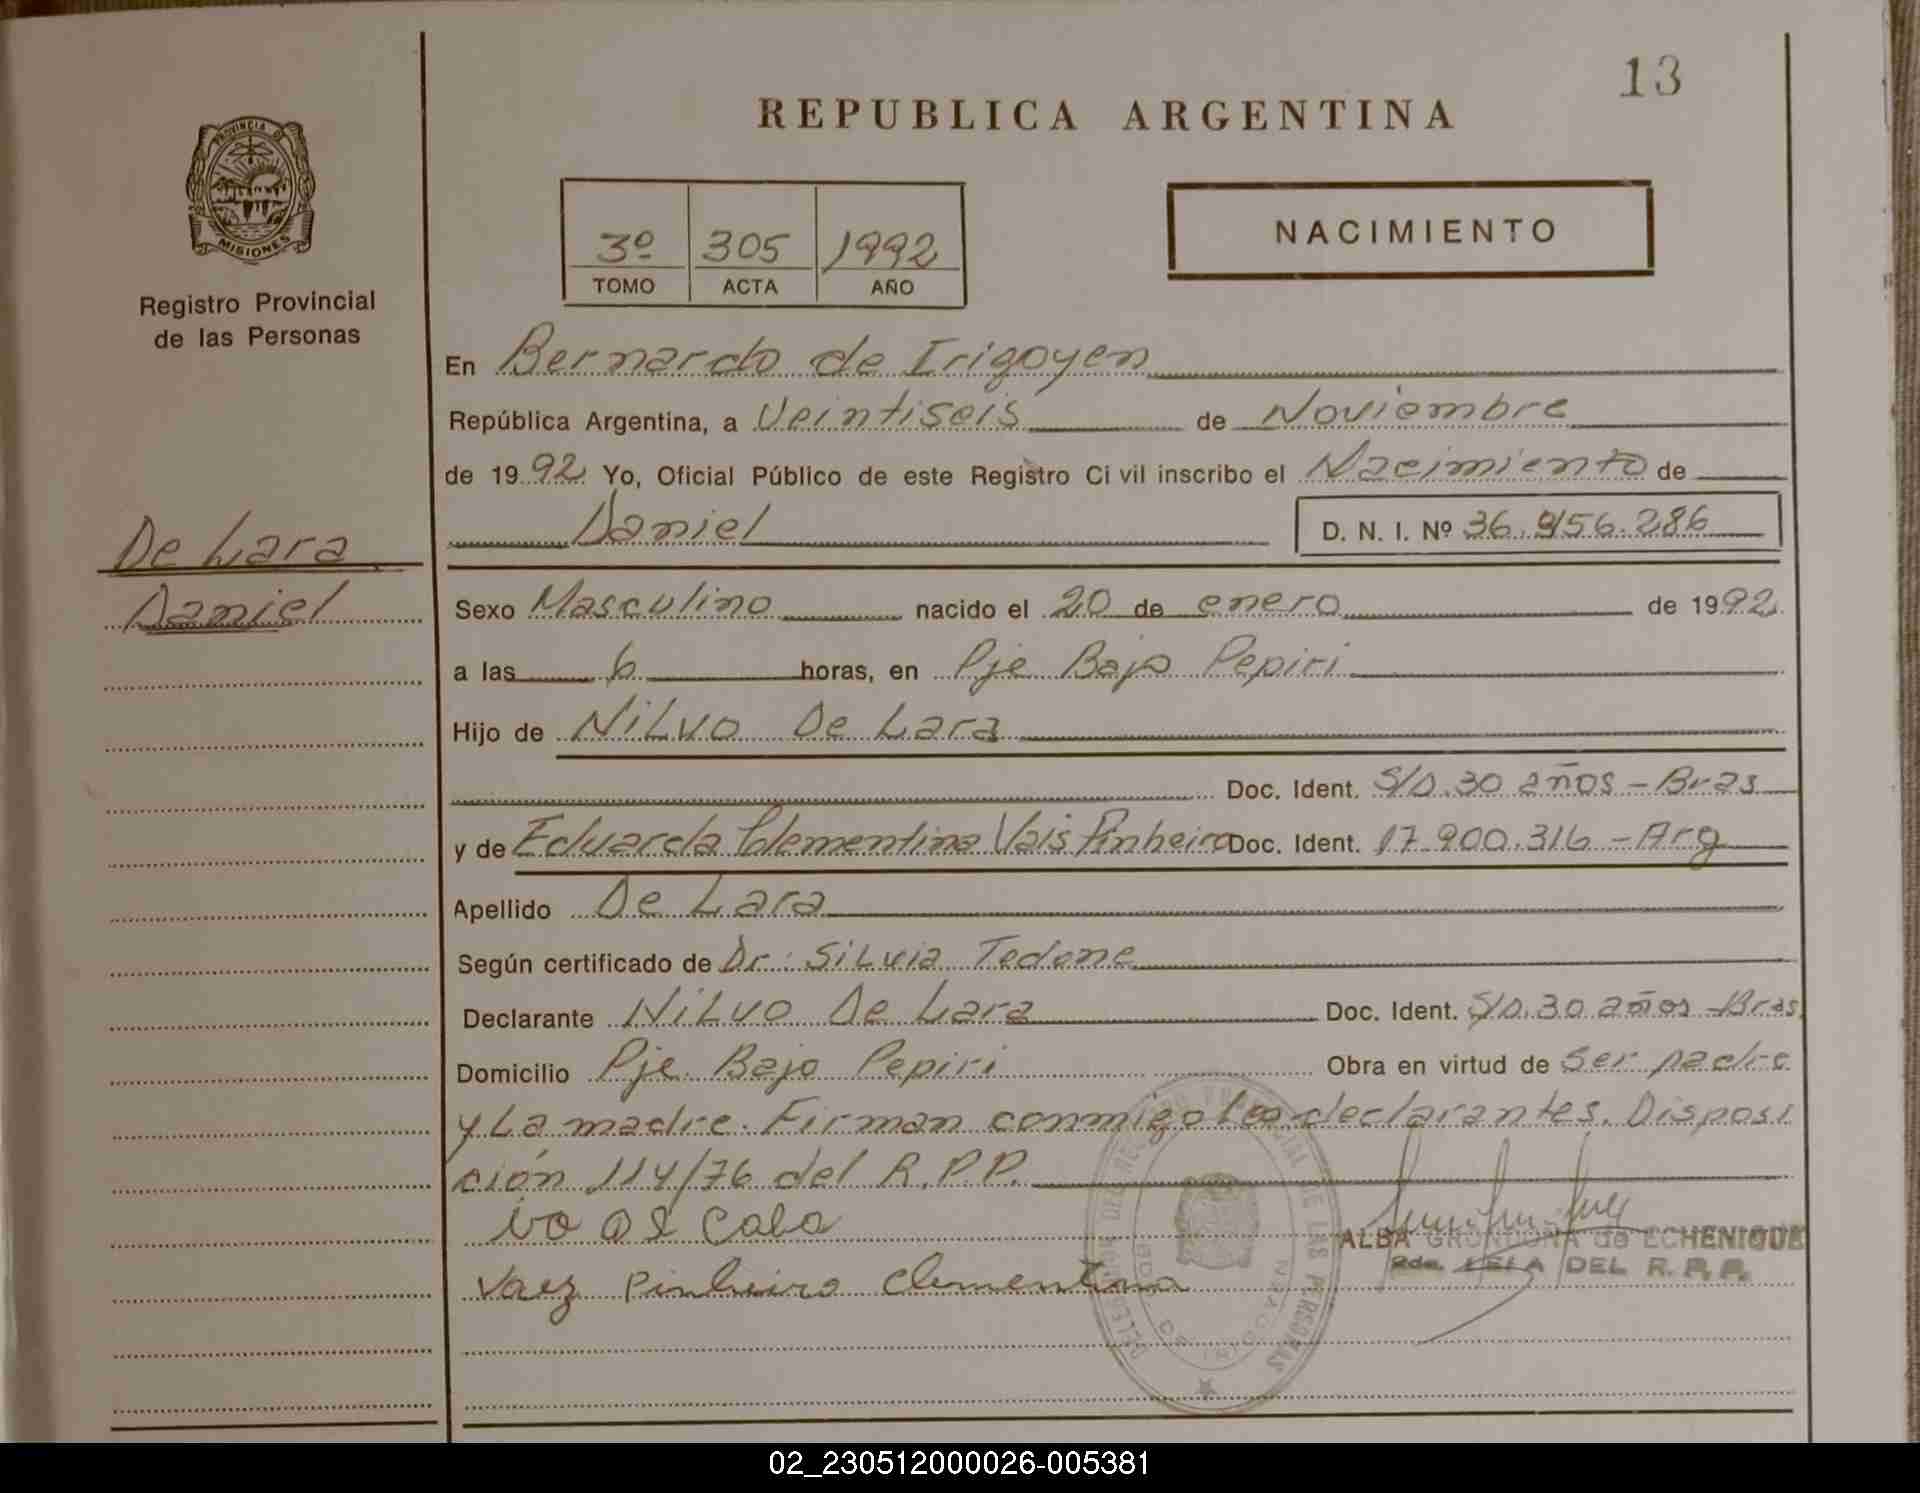 13
REPUBLICA ARGENTINA
PROVINCIA DE
MISIONES
Registro Provincial
de las Personas
3º 305 1992
TOMO ACTA AÑO
NACIMIENTO
En Bernardo de Irigoyen
República Argentina, a Veintiseis de Noviembre
de 1992 Yo, Oficial Público de este Registro Civil inscribo el Nacimiento de
Daniel D. N. I. Nº 36.956.286
De Lara
Daniel
Sexo Masculino nacido el 20 de enero de 1992
a las 6 horas, en Pje Bajo Pepiri
Hijo de Nilvo De Lara
Doc. Ident. S/D.30 años - Bras
y de Eduarda Clementina Vais Pinheiro Doc. Ident. 17.900.316 - Arg
Apellido De Lara
Según certificado de Dr: Silvia Tedone
Declarante Nilvo De Lara Doc. Ident. S/D.30 años - Bras.
Domicilio Pje. Bajo Pepiri Obra en virtud de Ser padre
y La madre. Firman conmigo los declarantes. Disposi
ción 114/76 del R.P.P.
Vaez Pinheiro Clementina
ALBA GRONDONA de ECHENIQUE
DEL R. P. P.
02_230512000026-005381